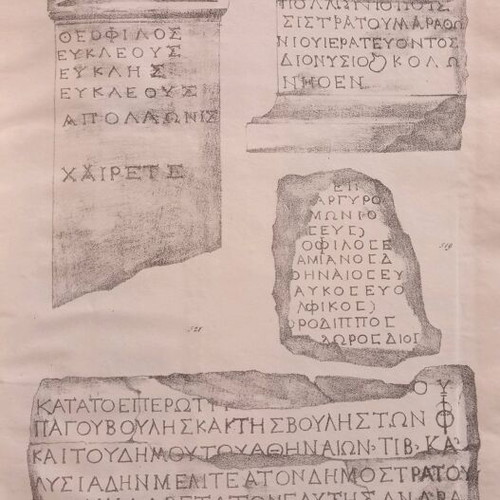 ΘΕΟΦΙΛΟΣ
ΕΥΚΛΕΟΥΣ
ΕΥΚΛΗΣ
ΕΥΚΛΕΟΥΣ
ΑΠΟΛΛΩΝΙΣ
ΧΑΙΡΕΤΕ
ΣΙΣΤΡΑΤΟΥΜΑΡΑΘΩ
ΝΙΟΥΙΕΡΑΤΕΥΟΝΤΟΣ
ΔΙΟΝΥΣΙΟΥΚΟΛΩ
ΝΗΘΕΝ
ΕΠΙ
ΑΡΓΥΡΟ
ΜΩΝΙΟ
ϹΕΥϹ)
ΟΦΙΛΟϹΕ
ΑΜΙΑΝΟϹΔ
ΘΗΝΑΙΟϹΕΥ
ΑΥΚΟϹΕΥΟ
ΛΦΙΚΟϹ)
ΡΟΔΙΠΠΟϹ
ΔΩΡΟϹΔΙΟ
519
521
ΟΥ
ΚΑΤΑΤΟΕΠΕΡΩΤΗ
ΠΑΓΟΥΒΟΥΛΗΣΚΑΚΤΗΣΒΟΥΛΗΣΤΩΝ Φ
ΚΑΙΤΟΥΔΗΜΟΥΤΟΥΑΘΗΝΑΙΩΝ›ΤΙΒ›ΚΛ
ΛΥΣΙΑΔΗΝΜΕΛΙΤΕΑΤΟΝΔΗΜΟΣΤΡΑΤΟΥ